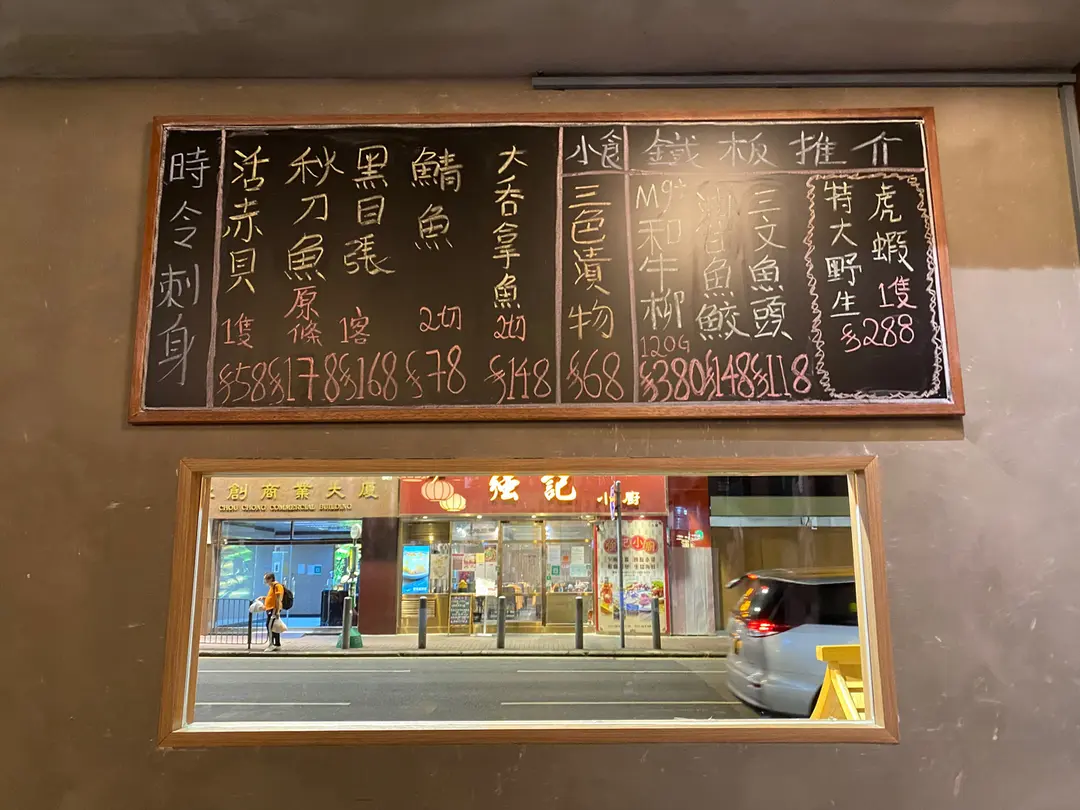 時令刺身
活赤貝
1隻
$58
秋刀魚
原條
$178
黑目張
1客
$168
鯖魚
2切
$78
大吞拿魚
2切
$148
小食
三色漬物
$68
鐵板推介
M9+和牛柳
120G
$380
魚鮫
$148
三文魚頭
$118
特大野生
虎蝦
1隻
$288
創商業大廈
CHOU CHONG COMMERCIAL BUILDING
強記
小廚